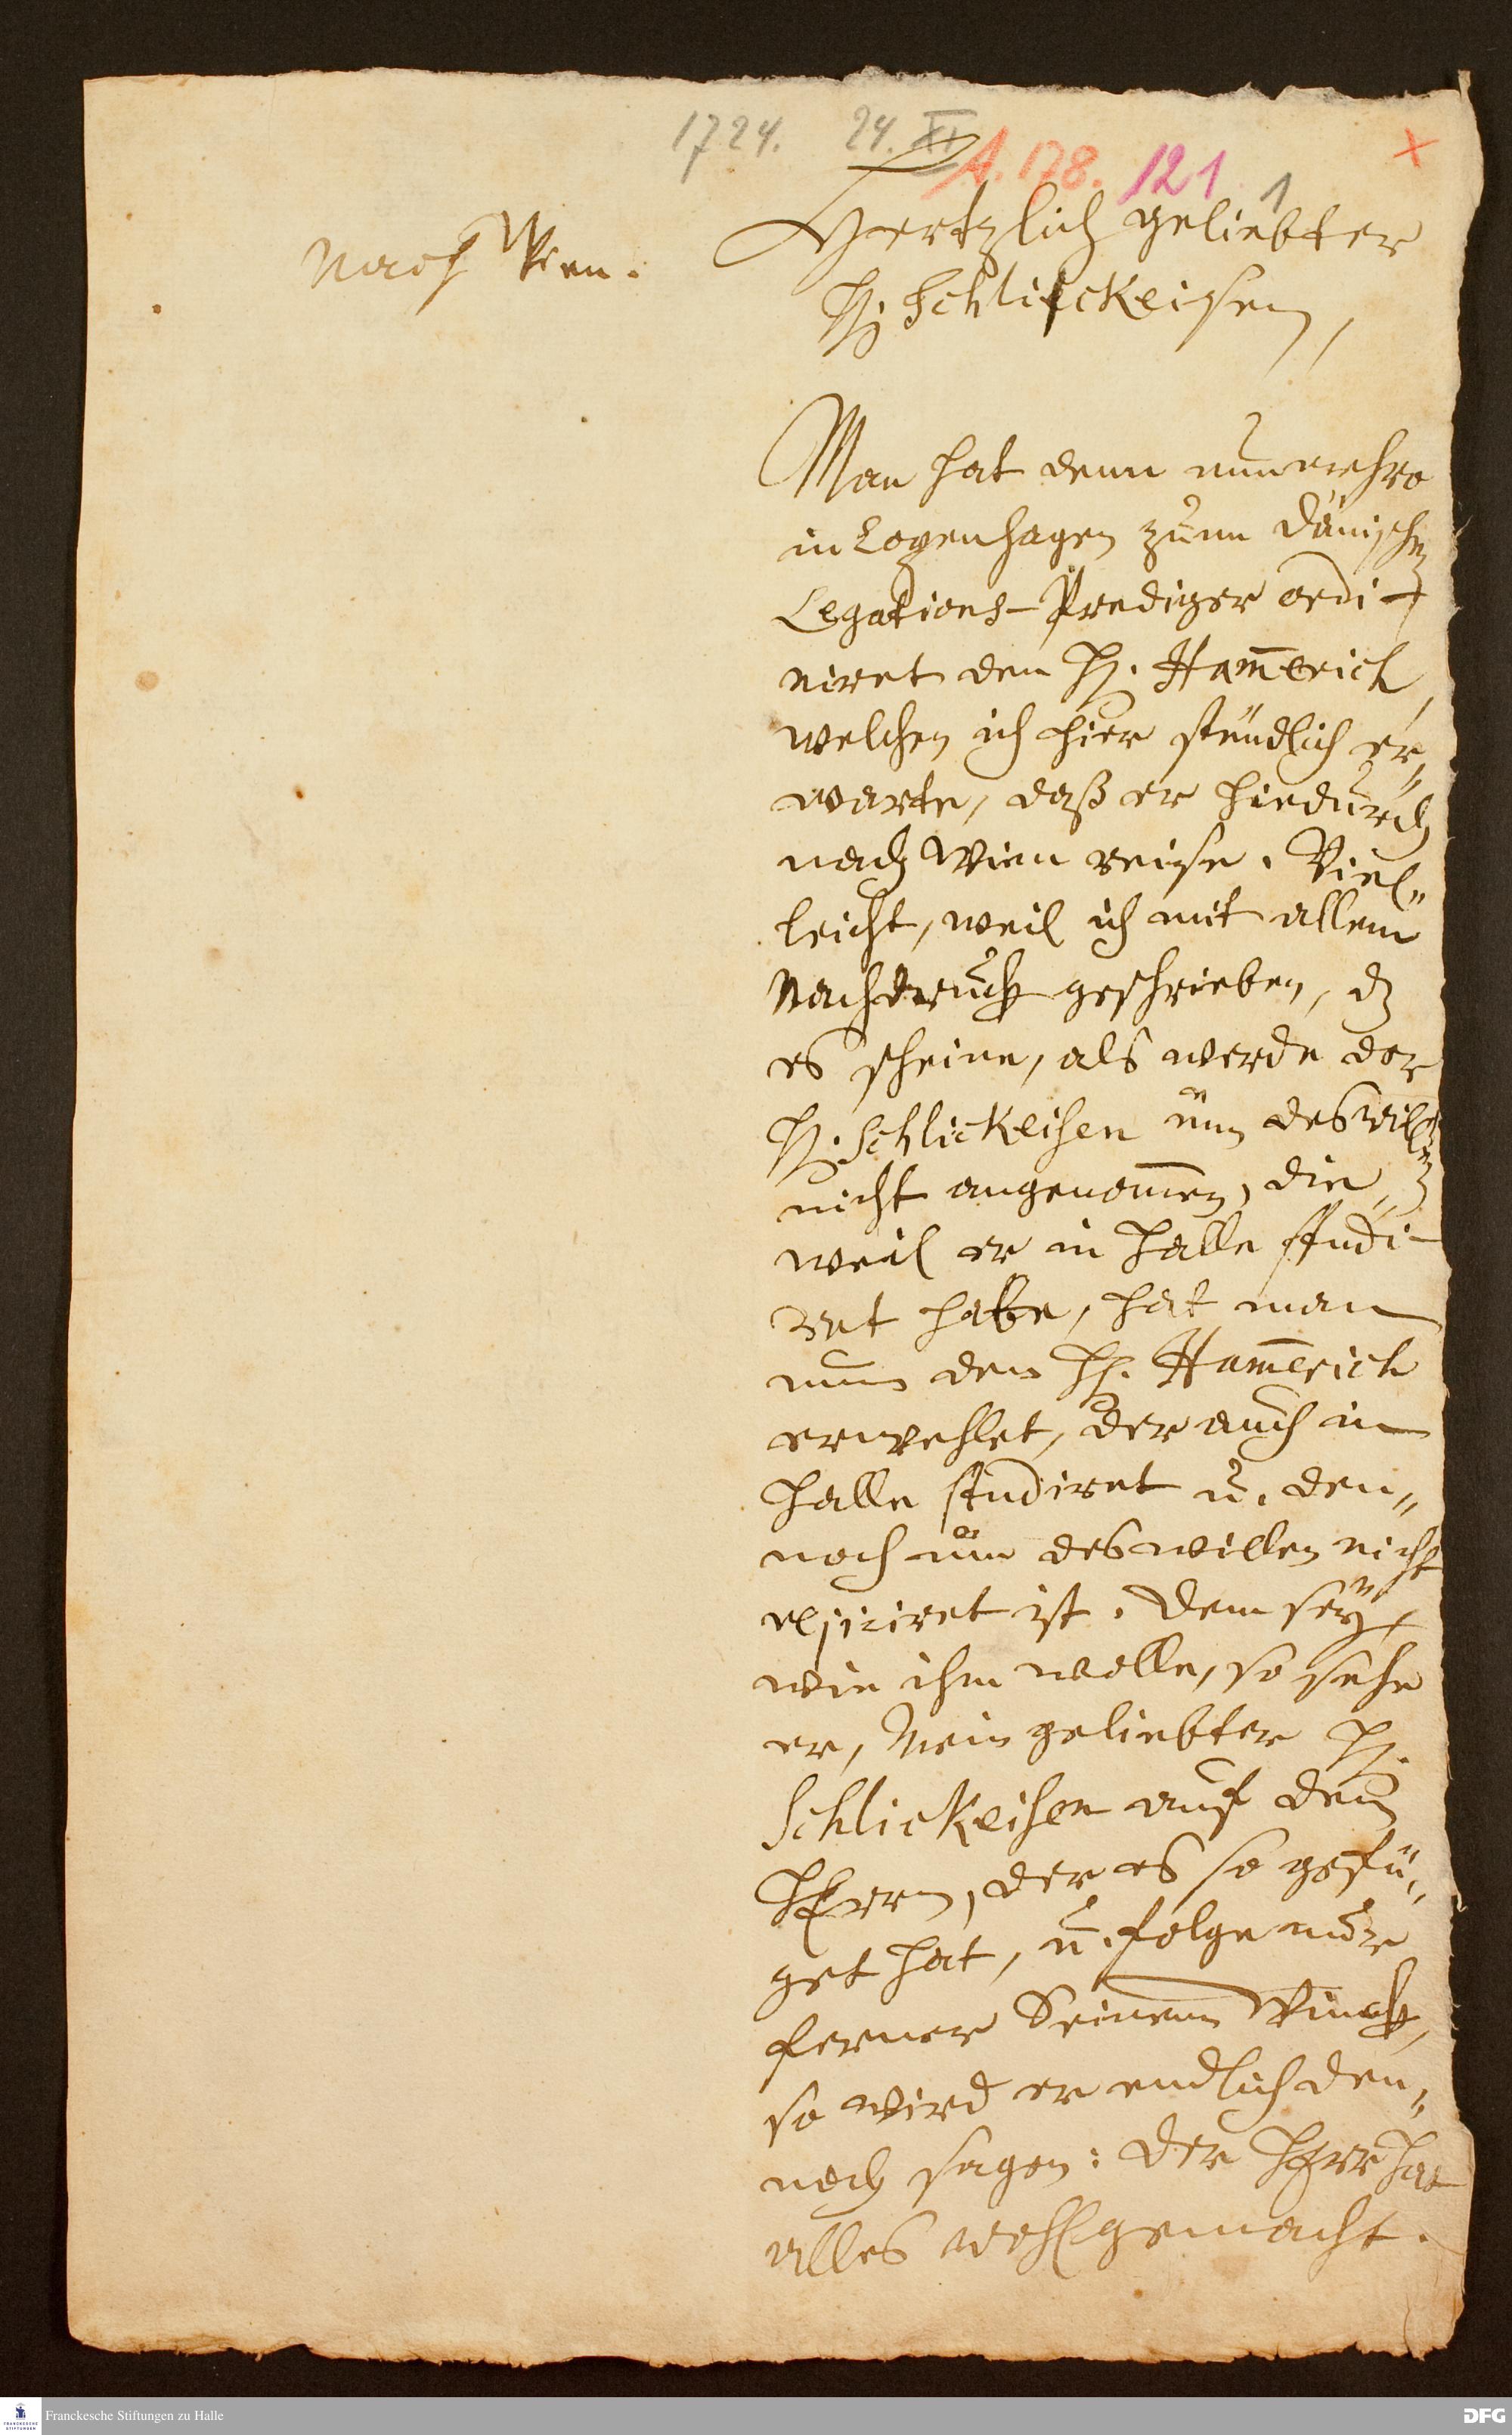 1724. 24. XI
A. 178. 121 1
x
Nach Wien.
Hertzlich geliebter
H. Schlickeisen,
Man hat denn nunmehro
in Copenhagen zum Dänischen
Legations-Prediger ordi-
niret den H. Ham̄erich,
welchen ich hier stündlich er„
warte, daß er hiedurch
nach Wien reise. Viel„
leicht, weil ich mit allem
Nachdruck geschrieben, dz
es scheine, als werde der
H. Schlickeisen üm deswillen
nicht angenom̄en, die„
weil er in Halle studi-
ret habe, hat man
nun den H. Ham̄erich
erwehlet, der auch in
Halle studiret u. den„
noch üm deswillen nicht
rejiciret ist. Dem sey,
wie ihm wolle, so sehe
er, Mein geliebter H.
Schlickeisen auf den
HErrn, der es so gefü„
get hat, u. folge nur
ferner Seinem Winck,
so wird er endlich den„
noch sagen: Der HErr hat
alles wohlgemacht.
Franckesche Stiftungen zu Halle
FRANCKESCHE
STIFTUNGEN
DFG